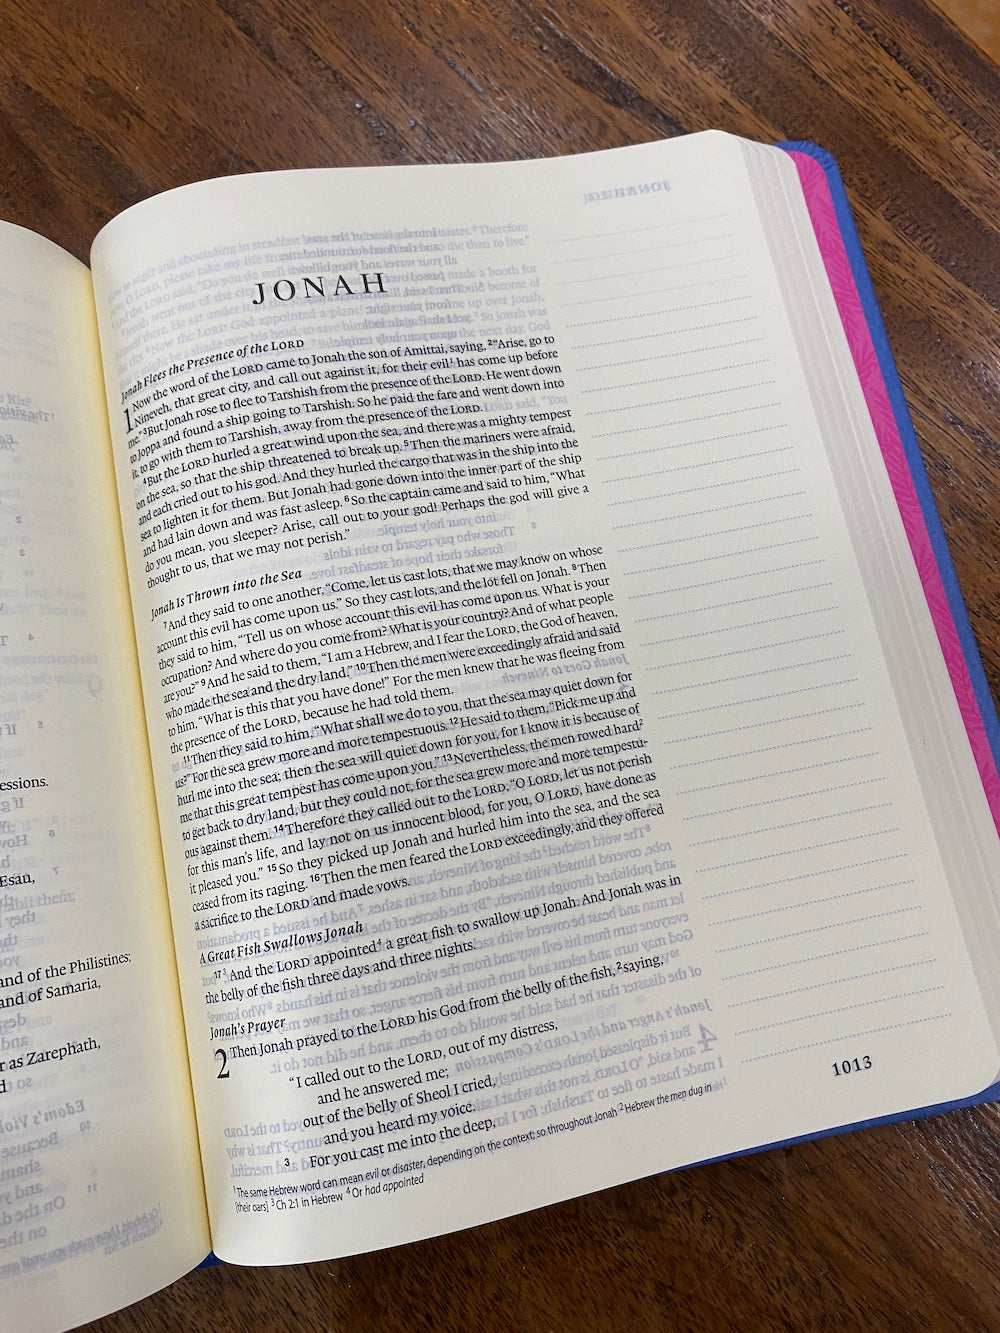 essions.
Esau,
and of the Philistines;
and of Samaria,
r as Zarephath,
JONAH
Jonah Flees the Presence of the LORD
1 Now the word of the LORD came to Jonah the son of Amittai, saying, 2 “Arise, go to
Nineveh, that great city, and call out against it, for their evil1 has come up before
me.” 3 But Jonah rose to flee to Tarshish from the presence of the LORD. He went down
to Joppa and found a ship going to Tarshish. So he paid the fare and went down into
it, to go with them to Tarshish, away from the presence of the LORD.
4 But the LORD hurled a great wind upon the sea, and there was a mighty tempest
on the sea, so that the ship threatened to break up. 5 Then the mariners were afraid,
and each cried out to his god. And they hurled the cargo that was in the ship into the
sea to lighten it for them. But Jonah had gone down into the inner part of the ship
and had lain down and was fast asleep. 6 So the captain came and said to him, “What
do you mean, you sleeper? Arise, call out to your god! Perhaps the god will give a
thought to us, that we may not perish.”
Jonah Is Thrown into the Sea
7 And they said to one another, “Come, let us cast lots, that we may know on whose
account this evil has come upon us.” So they cast lots, and the lot fell on Jonah. 8 Then
they said to him, “Tell us on whose account this evil has come upon us. What is your
occupation? And where do you come from? What is your country? And of what people
are you?” 9 And he said to them, “I am a Hebrew, and I fear the LORD, the God of heaven,
who made the sea and the dry land.” 10 Then the men were exceedingly afraid and said
to him, “What is this that you have done!” For the men knew that he was fleeing from
the presence of the LORD, because he had told them.
11 Then they said to him, “What shall we do to you, that the sea may quiet down for
us?” For the sea grew more and more tempestuous. 12 He said to them, “Pick me up and
hurl me into the sea; then the sea will quiet down for you, for I know it is because of
me that this great tempest has come upon you.” 13 Nevertheless, the men rowed hard2
to get back to dry land, but they could not, for the sea grew more and more tempestu-
ous against them. 14 Therefore they called out to the LORD, “O LORD, let us not perish
for this man’s life, and lay not on us innocent blood, for you, O LORD, have done as
it pleased you.” 15 So they picked up Jonah and hurled him into the sea, and the sea
ceased from its raging. 16 Then the men feared the LORD exceedingly, and they offered
a sacrifice to the LORD and made vows.
A Great Fish Swallows Jonah
17 3 And the LORD appointed4 a great fish to swallow up Jonah. And Jonah was in
the belly of the fish three days and three nights.
Jonah’s Prayer
2 Then Jonah prayed to the LORD his God from the belly of the fish, 2 saying,
“I called out to the LORD, out of my distress,
and he answered me;
out of the belly of Sheol I cried,
and you heard my voice.
3 For you cast me into the deep,
1 The same Hebrew word can mean evil or disaster, depending on the context; so throughout Jonah 2 Hebrew the men dug in
[their oars] 3 Ch 2:1 in Hebrew 4 Or had appointed
1013